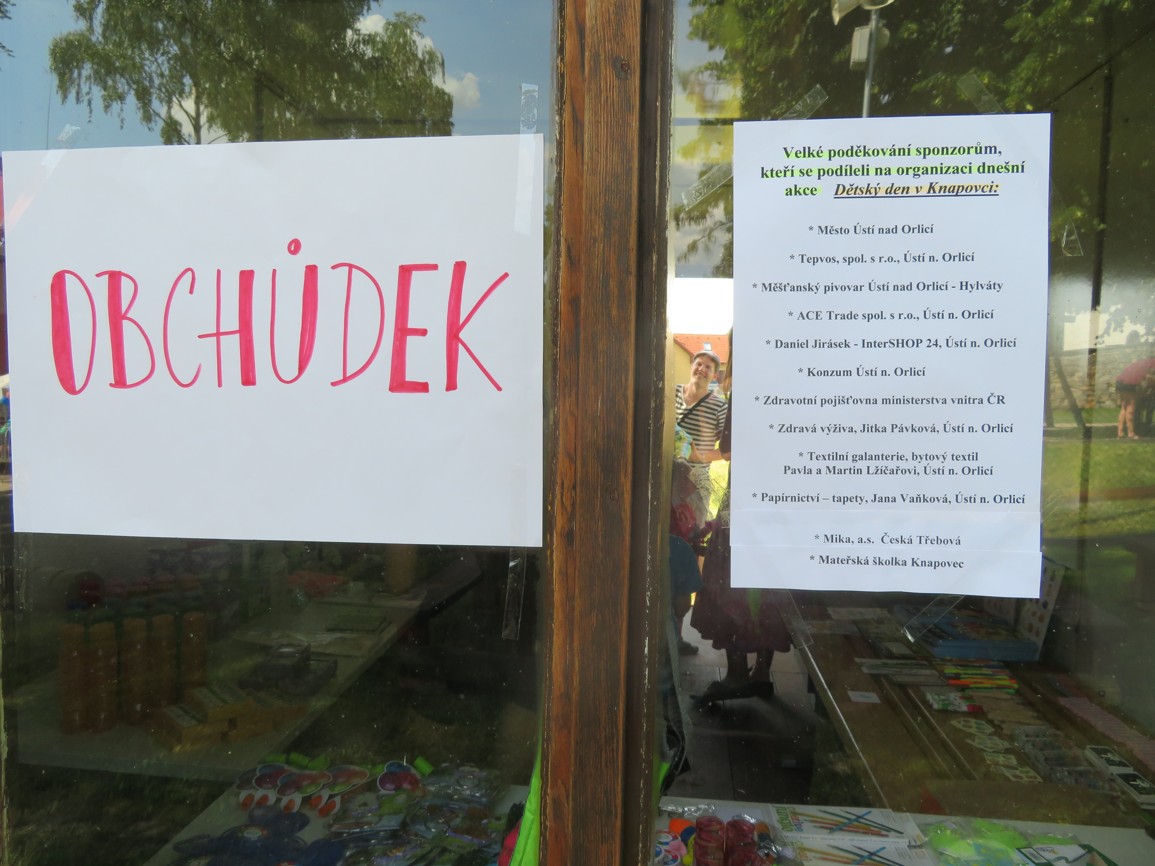 OBCHŮDEK
Velké poděkování sponzorům,
kteří se podíleli na organizaci dnešní
akce Dětský den v Knapovci:
* Město Ústí nad Orlicí
* Tepvos, spol. s r.o., Ústí n. Orlicí
* Měšťanský pivovar Ústí nad Orlicí - Hylváty
* ACE Trade spol. s r.o., Ústí n. Orlicí
* Daniel Jirásek - InterSHOP 24, Ústí n. Orlicí
* Konzum Ústí n. Orlicí
* Zdravotní pojišťovna ministerstva vnitra ČR
* Zdravá výživa, Jitka Pávková, Ústí n. Orlicí
* Textilní galanterie, bytový textil
Pavla a Martin Lžíčařovi, Ústí n. Orlicí
* Papírnictví – tapety, Jana Vaňková, Ústí n. Orlicí
* Mika, a.s. Česká Třebová
* Mateřská školka Knapovec